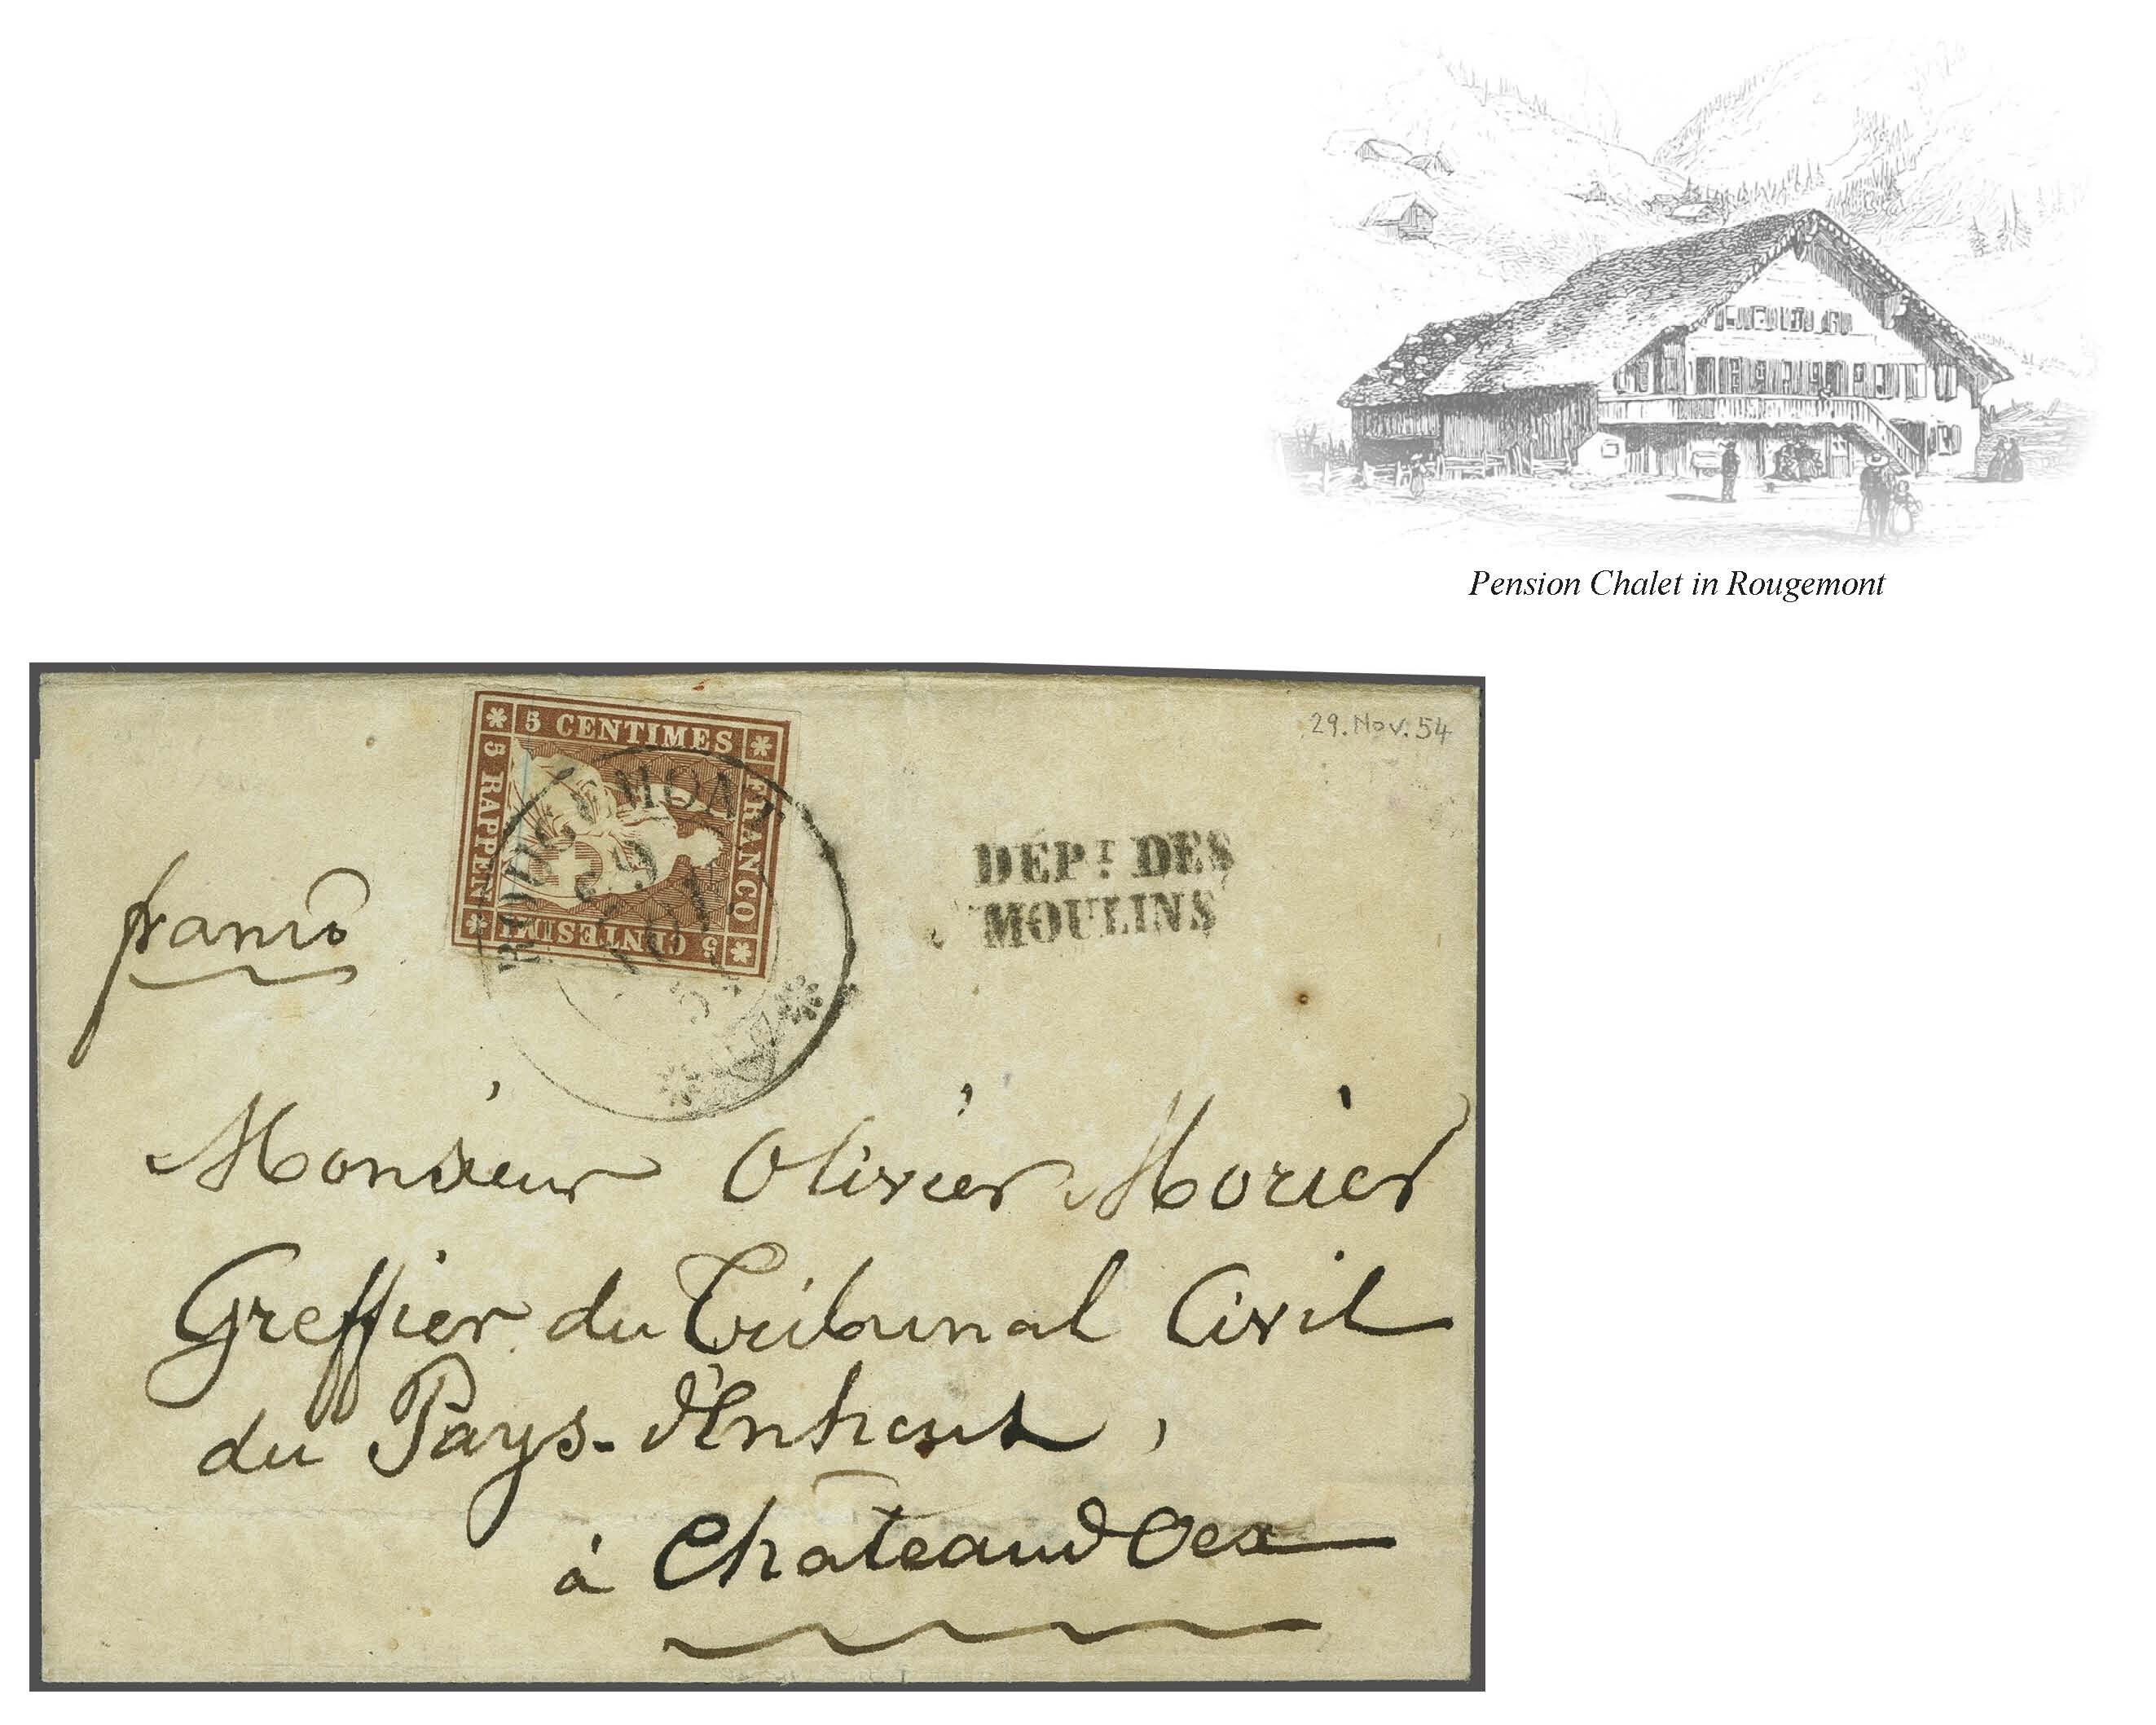 Pension Chalet in Rougemont
29. Nov. 54
5 CENTIMES
5 RAPPEN
FRANCO
5 CENTESIMI
ROUGEMONT
29
NOV
5
DÉPT. DES
MOULINS
franco
Monsieur Olivier Morier
Greffier du Tribunal Civil
du Pays-d'Enhaut,
à Chateaud'Oex